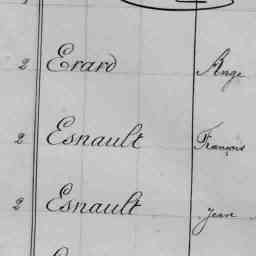 2 Erard Ange
2 Esnault François
2 Esnault Jean